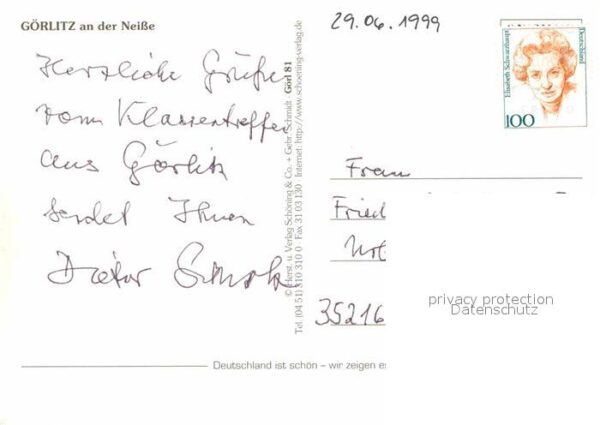 GÖRLITZ an der Neiße
Herzliche Grüße
vom Klassentreffen
aus Görlitz
sendet Ihnen
Dieter
© Herst. u. Verlag Schöning & Co. + Gebr. Schmidt · Görl 81
Tel. (04 51) 310 310 0 · Fax 31 03 130 · Internet: http://www.schoening-verlag.de
29.06.1999
Elisabeth Schwarzhaupt
Deutschland
100
Frau
Fried
35216
privacy protection
Datenschutz
Deutschland ist schön – wir zeigen es